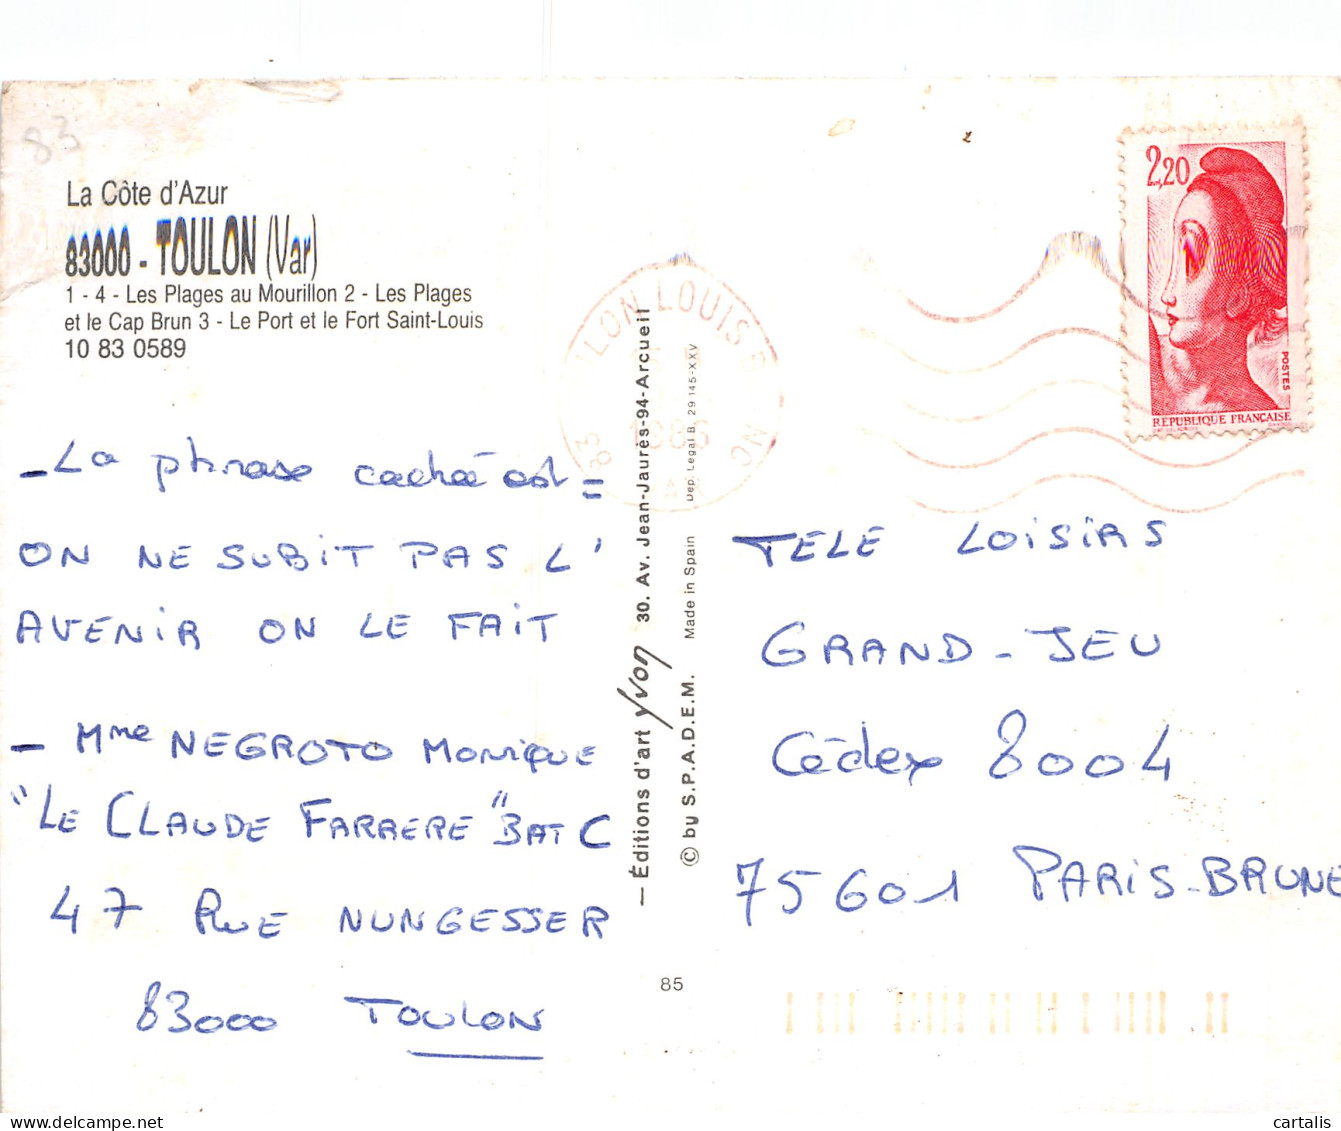 83
La Côte d'Azur
83000 - TOULON (Var)
1 - 4 - Les Plages au Mourillon 2 - Les Plages
et le Cap Brun 3 - Le Port et le Fort Saint-Louis
10 83 0589
- La phrase cachée est =
ON NE SUBIT PAS L'
AVENIR ON LE FAIT
- Mme NEGROTO Monique
"LE CLAUDE FARRERE" BAT C
47 RUE NUNGESSER
83000 TOULON
— Éditions d'art yvon 30. Av. Jean-Jaurès-94-Arcueil
© by S.P.A.D.E.M. Made in Spain Dep. Legal B. 29145-XXV
85
LON LOUIS B
83
2,20
POSTES
REPUBLIQUE FRANÇAISE
TELE LOISIRS
GRAND-JEU
Cédex 8004
75601 PARIS-BRUNE
cartalis
delcampe.net